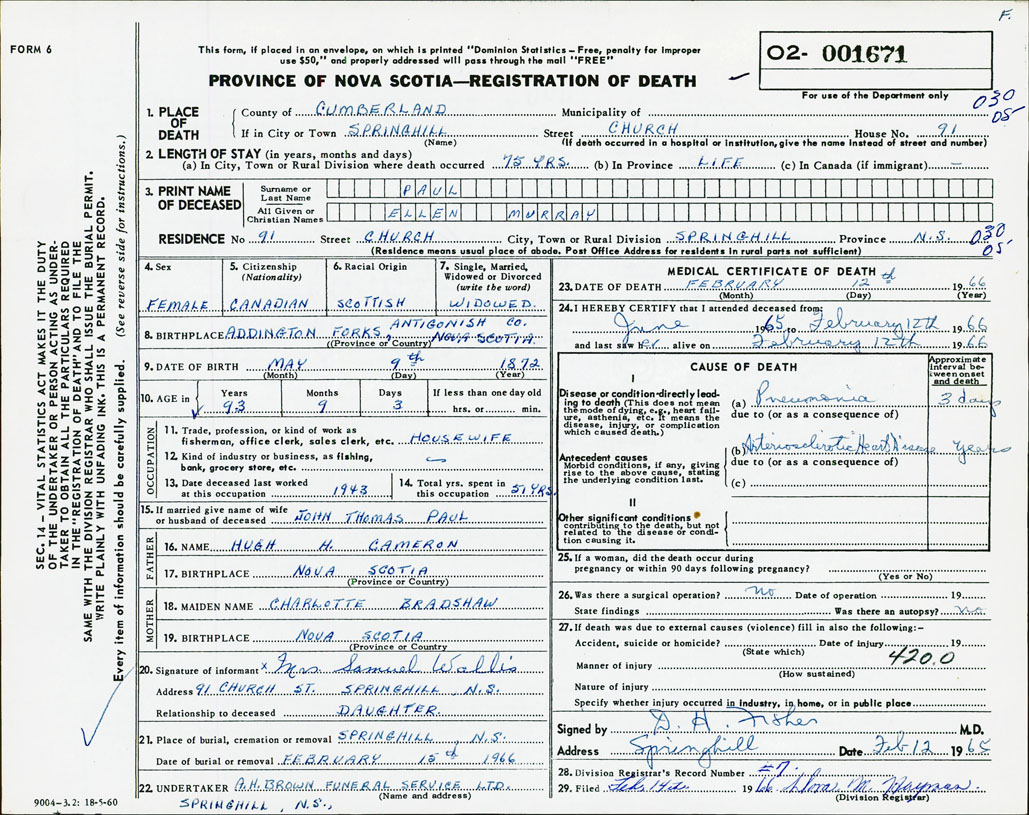 F.
FORM 6
This form, if placed in an envelope, on which is printed "Dominion Statistics – Free, penalty for improper
use $50," and properly addressed will pass through the mail "FREE"
PROVINCE OF NOVA SCOTIA—REGISTRATION OF DEATH
02- 001671
For use of the Department only
030
05
1. PLACE OF DEATH
County of CUMBERLAND Municipality of
If in City or Town SPRINGHILL Street CHURCH House No. 91
(Name) (If death occurred in a hospital or institution, give the name instead of street and number)
2. LENGTH OF STAY (in years, months and days)
(a) In City, Town or Rural Division where death occurred 75 YRS. (b) In Province LIFE (c) In Canada (if immigrant) —
3. PRINT NAME OF DECEASED
Surname or Last Name PAUL
All Given or Christian Names ELLEN MURRAY
RESIDENCE No 91 Street CHURCH City, Town or Rural Division SPRINGHILL Province N.S. 030
05
(Residence means usual place of abode. Post Office Address for residents in rural parts not sufficient)
4. Sex
FEMALE
5. Citizenship
(Nationality)
CANADIAN
6. Racial Origin
SCOTTISH
7. Single, Married,
Widowed or Divorced
(write the word)
WIDOWED.
8. BIRTHPLACE ADDINGTON FORKS, ANTIGONISH CO. NOVA SCOTIA.
(Province or Country)
9. DATE OF BIRTH MAY 9th 1872
(Month) (Day) (Year)
10. AGE in
Years 93
Months 9
Days 3
If less than one day old
hrs. or min.
OCCUPATION
11. Trade, profession, or kind of work as
fisherman, office clerk, sales clerk, etc. HOUSEWIFE
12. Kind of industry or business, as fishing,
bank, grocery store, etc.
13. Date deceased last worked
at this occupation 1943
14. Total yrs. spent in
this occupation 51 YRS.
15. If married give name of wife
or husband of deceased JOHN THOMAS PAUL
FATHER
16. NAME HUGH H. CAMERON
17. BIRTHPLACE NOVA SCOTIA
(Province or Country)
MOTHER
18. MAIDEN NAME CHARLOTTE BRADSHAW
19. BIRTHPLACE NOVA SCOTIA
(Province or Country)
20. Signature of informant x Mrs Samuel Wallis
Address 91 CHURCH ST. SPRINGHILL, N.S.
Relationship to deceased DAUGHTER.
21. Place of burial, cremation or removal SPRINGHILL, N.S.
Date of burial or removal FEBRUARY 15th 1966
22. UNDERTAKER A.H. BROWN FUNERAL SERVICE LTD.
(Name and address)
SPRINGHILL, N.S.,
MEDICAL CERTIFICATE OF DEATH
23. DATE OF DEATH FEBRUARY 12th 1966
(Month) (Day) (Year)
24. I HEREBY CERTIFY that I attended deceased from:
June 1965 to February 12th 1966
and last saw her alive on February 12th 1966
CAUSE OF DEATH
Approximate interval between onset and death
I
Disease or condition directly leading to death (This does not mean
the mode of dying, e.g., heart failure, asthenia, etc. It means the
disease, injury, or complication
which caused death.)
(a) Pneumonia 3 days
due to (or as a consequence of)
Antecedent causes
Morbid conditions, if any, giving
rise to the above cause, stating
the underlying condition last.
(b) Arteriosclerotic Heart Disease years
due to (or as a consequence of)
(c)
II
Other significant conditions
contributing to the death, but not
related to the disease or condition causing it.
25. If a woman, did the death occur during
pregnancy or within 90 days following pregnancy?
(Yes or No)
26. Was there a surgical operation? no Date of operation 19
State findings Was there an autopsy? no
27. If death was due to external causes (violence) fill in also the following:-
Accident, suicide or homicide? Date of injury 19
(State which)
420.0
Manner of injury
(How sustained)
Nature of injury
Specify whether injury occurred in industry, in home, or in public place
Signed by D. H. Fisher M.D.
Address Springhill Date Feb 12 1966
28. Division Registrar's Record Number #7.
29. Filed Feb. 14th 1966 M.
(Division Registrar)
SEC. 14 – VITAL STATISTICS ACT MAKES IT THE DUTY
OF THE UNDERTAKER OR PERSON ACTING AS UNDER-
TAKER TO OBTAIN ALL THE PARTICULARS REQUIRED
IN THE "REGISTRATION OF DEATH" AND TO FILE THE
SAME WITH THE DIVISION REGISTRAR WHO SHALL ISSUE THE BURIAL PERMIT.
WRITE PLAINLY WITH UNFADING INK. THIS IS A PERMANENT RECORD.
Every item of information should be carefully supplied. (See reverse side for instructions.)
9004–3.2: 18-5-60